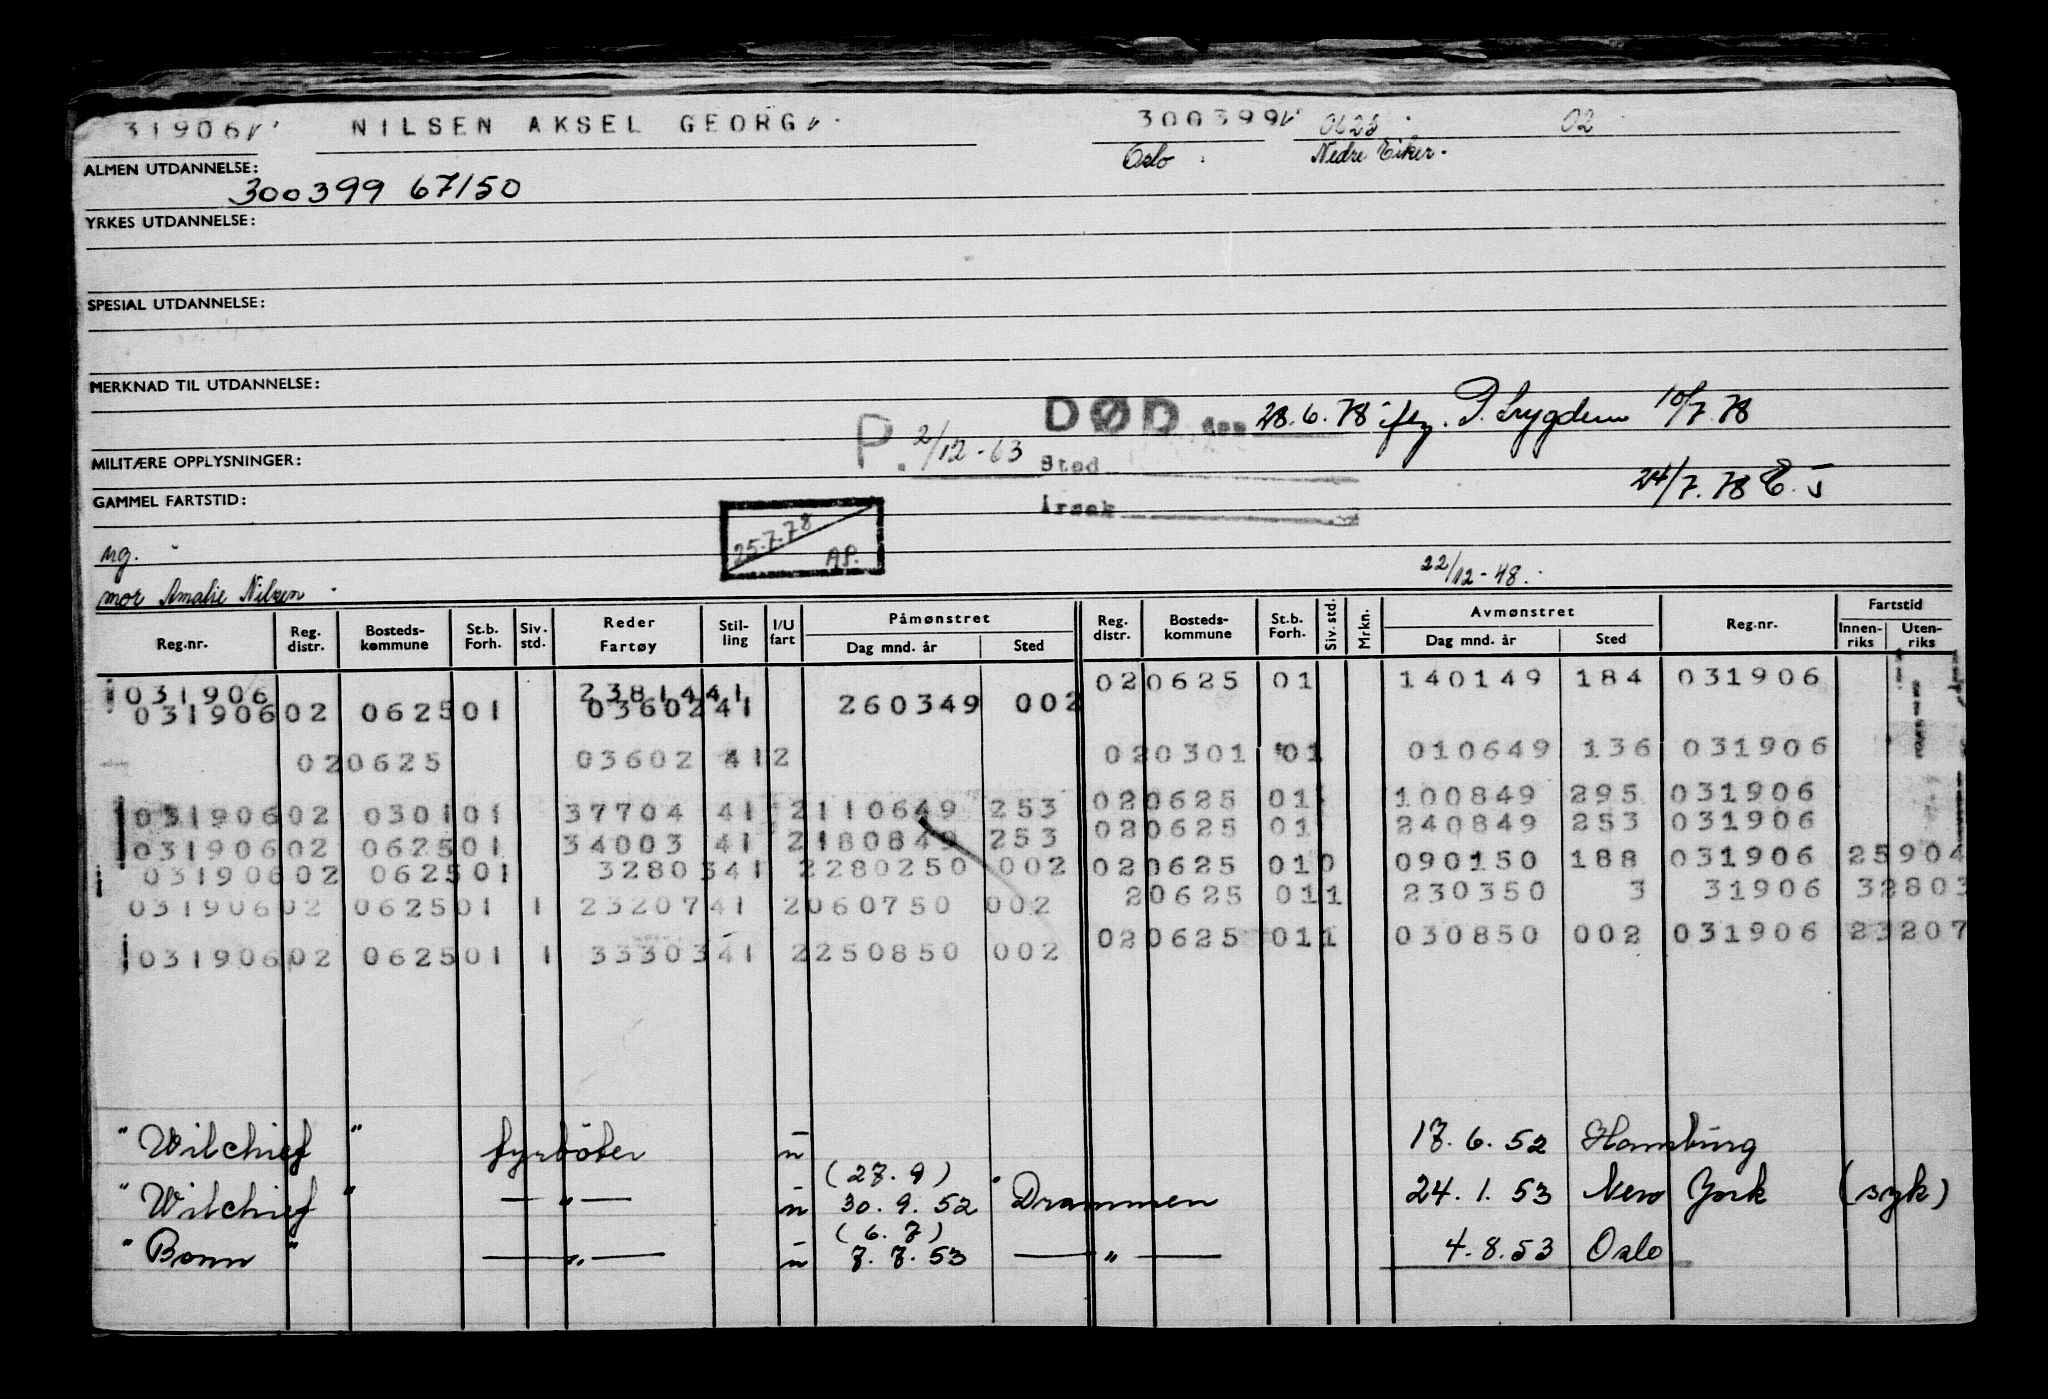 31906 NILSEN AKSEL GEORG 300399 0625 02
Oslo Nedre Eiker.
ALMEN UTDANNELSE:
300399 67150
YRKES UTDANNELSE:
SPESIAL UTDANNELSE:
MERKNAD TIL UTDANNELSE:
DØD den 28.6.78 iflg. 10/7.78
P. 2/12-63
MILITÆRE OPPLYSNINGER: Sted
24/7.78 E.J
GAMMEL FARTSTID: Årsak
25.7.78 AP.
ug.
22/12-48.
mor Amalie Nilsen
Reg.nr. Reg. distr. Bosteds-kommune St.b. Forh. Siv. std. Reder Fartøy Stil-ling I/U fart Påmønstret Dag mnd. år Sted Reg. distr. Bosteds-kommune St.b. Forh. Siv. std. Mrkn. Avmønstret Dag mnd. år Sted Reg.nr. Fartstid Innen-riks Uten-riks
031906 2381441 020625 01 140149 184 031906
031906 02 062501 0360241 260349 002
020625 03602 412 020301 01 010649 136 031906
031906 02 030101 37704 41 2110649 253 020625 01 100849 295 031906
031906 02 062501 34003 41 2180849 253 020625 01 240849 253 031906
031906 02 062501 3280341 2280250 002 020625 010 090150 188 031906 25904
031906 02 062501 1 2320741 2060750 002 20625 011 230350 3 31906 32803
031906 02 062501 1 3330341 2250850 002 020625 011 030850 002 031906 23207
"Wilchief" fyrbøter u 17.6.52 Hamburg
(27.9)
"Wilchief" — " — u 30.9.52 Drammen 24.1.53 New York (syk)
(6.7)
"Bonn" — " — u 7.7.53 — " — 4.8.53 Oslo